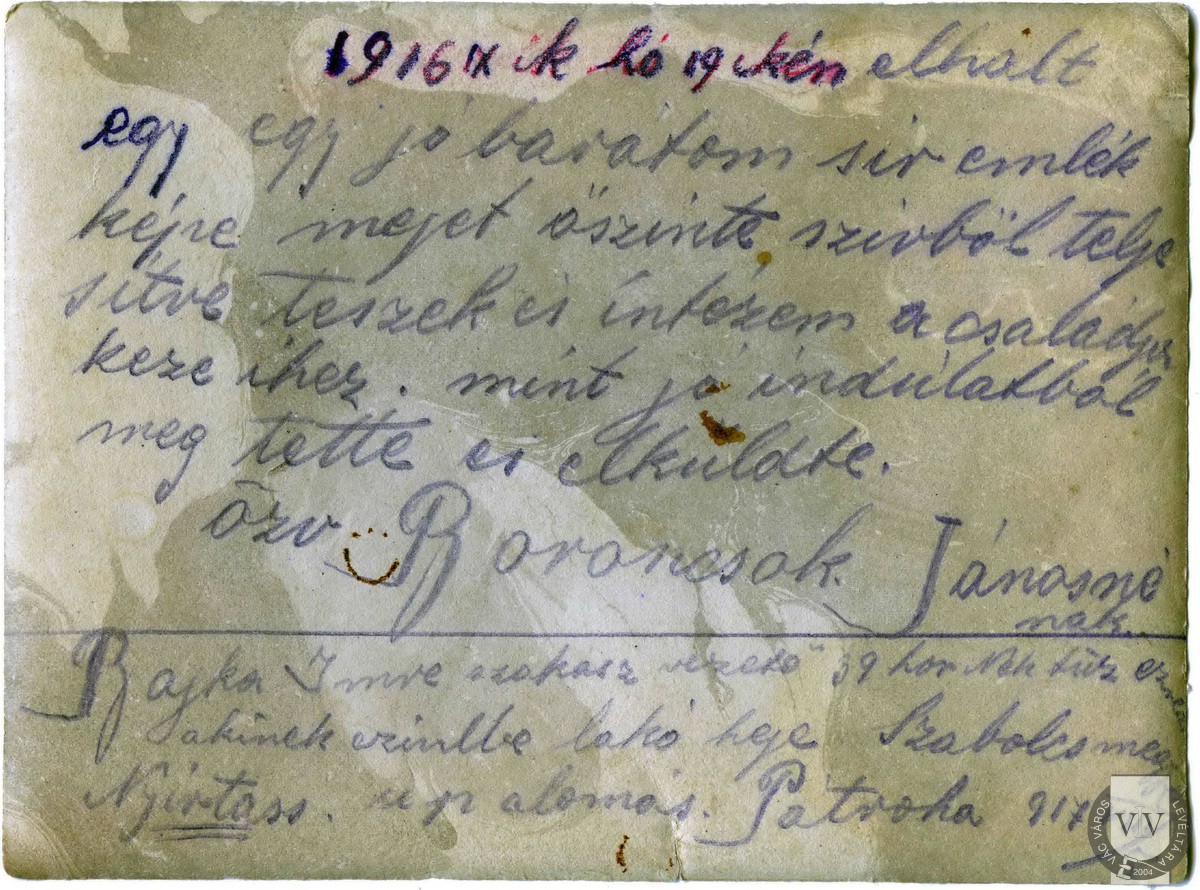 1916 IX ik hó 19 ikén elhalt
egy egy jó barátom sir emlék
képe mejet őszinte szivből telje
sitve teszek és intézem a családja
kezeihez. mint jó indúlatból
meg tette és elküldte.
özv Barancsok Jánosné
nak.
Bajka Imre szakasz vezető 39 hon
akinek czivilbe lakó heje Szabolcsmeg
Nyirtass. u p álomás. Pátroha 917
VÁC VÁROS LEVÉLTÁRA
VV
2004